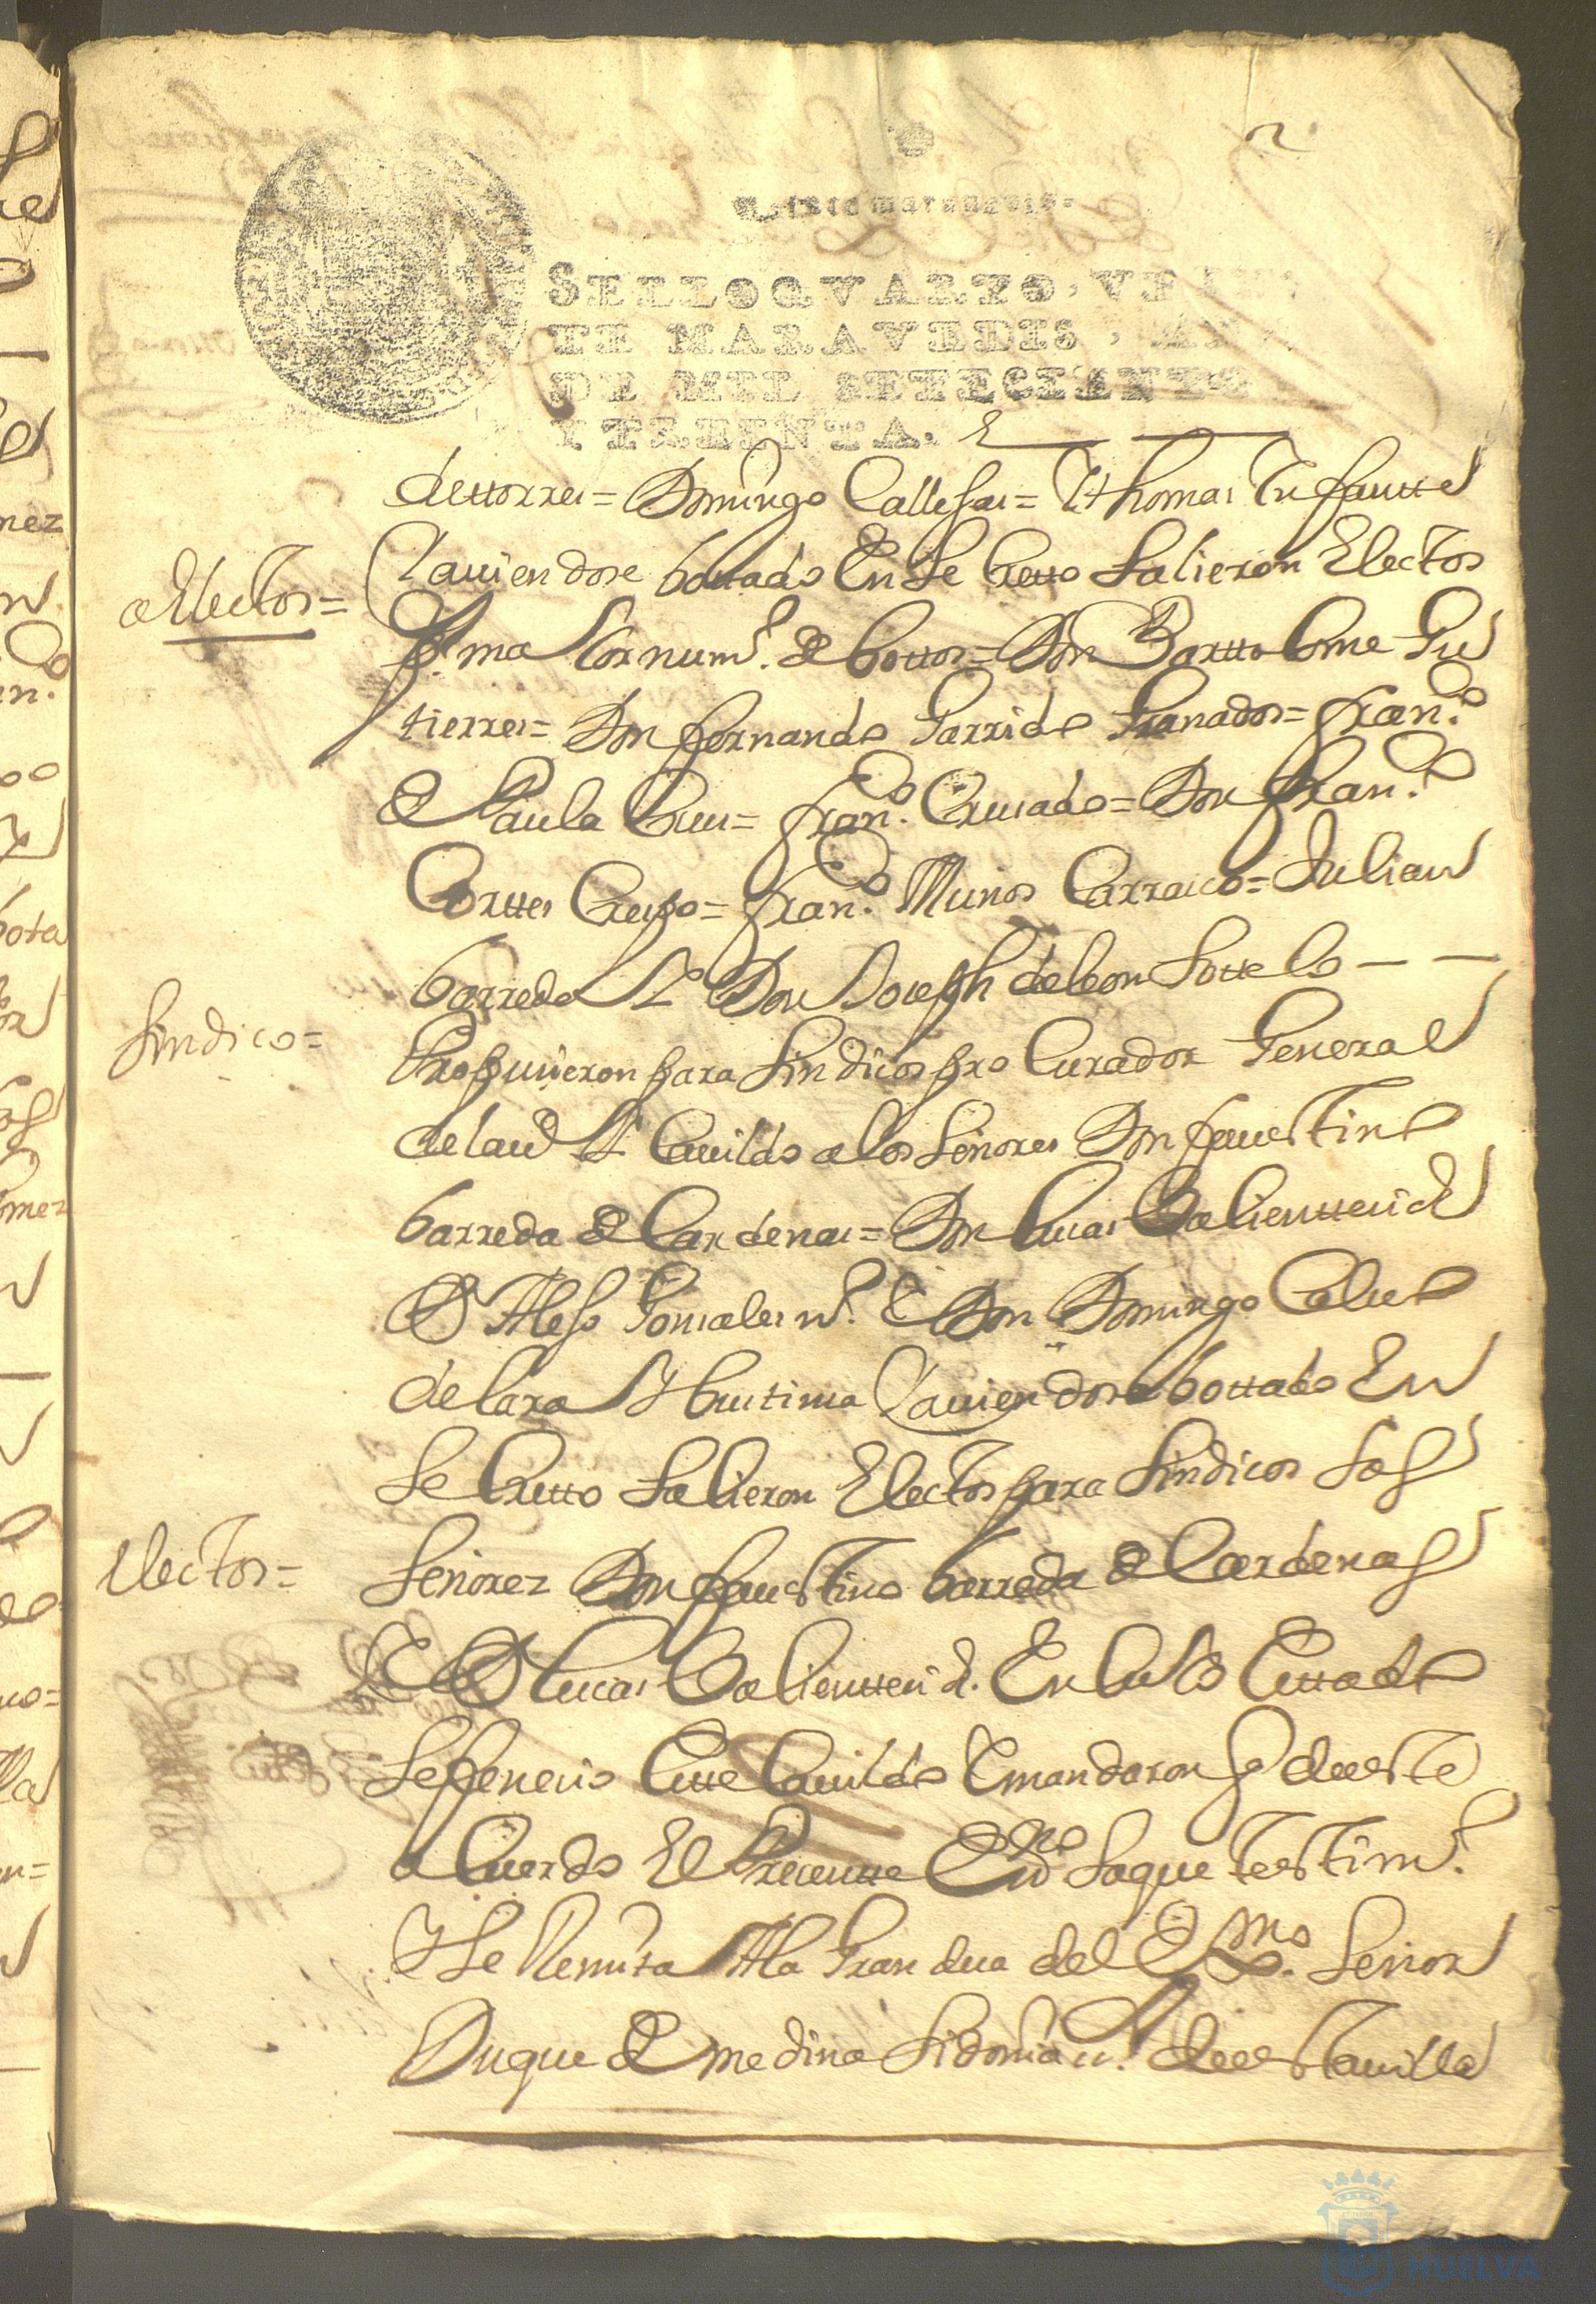 2
Veinte maravedis.
SELLO QVARTO, VEIN
TE MARAVEDIS, AÑ
DE MIL SETECIENTOS
Y TREINTA.
de ttorres = Domingo Callejas = Y thomas Ynfantte
Electos =
Y auiendose bottado En Secretto Salieron Electos
Por ma Cor num.º de bottos = Don Barttolome Gu
tierres = Don fernando Garrido Granados = fran.co
de Paula Crus = fran.co Crusado = Don fran.co
Corttes Crespo = fran.co Munos Carrasco = Julian
barreda Y Don Joseph de leon Sottelo — —
Sindico =
Propusieron para Sindicos procurador General
de la Cauildo a los Senores Don faustino
barreda de Cardenas = Don lucas Balienttesid
D Alejo Gonsales Don Domingo Caluo
de lara Y Auiendose bottado En
Secretto Salieron Electos para Sindicos los
Electos =
Senorez Don faustino barreda de Cardenas
E D lucas Balienttesid. En cuio Esttado
Se fenecio Estte Cauildo E mandaron q de este
a Cuerdo El Precentte Essno Saque testim.o
Y Se Remita A la Grandesa del Exmo. Senor
Duque de medina Sidonia s.r de esta uilla
HUELVA